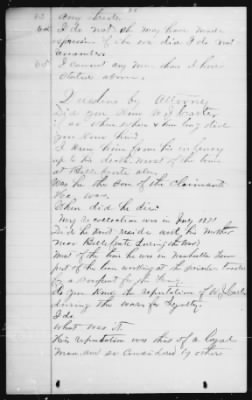 23
63 any trade
64 I do not. He may have made
expression if he did I do not
remember
65 I cannot any more than I have
stated above.
Questions by Attorney
Did you know W J Carter
if so when where & how long did
you know him
I knew him from his infancy
up to his death most of the time
at Bellefonte Ala
Was he the son of the Claimant
He was
When did he die
My recollection was in July 1871
Did he not reside with his mother
near Bellefonte during the war
Most of the time he was in Nashville Tenn
part of the time working at the
by a
Do you know the reputation of W J Carter
during the war for loyalty
I do
What was it
His reputation was that of a loyal
man and so considered by others